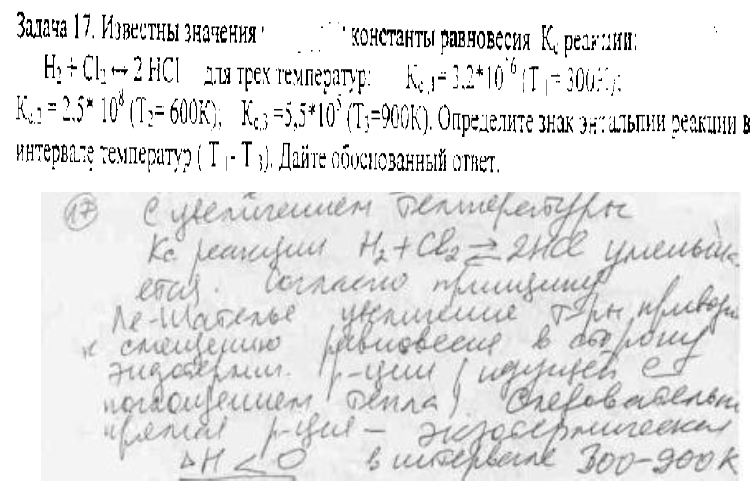 Задача 17. Известны значения константы равновесия Kc реакции:
H₂ + Cl₂ ↔ 2 HCl для трех температур: Kc,1= 3,2*10¹⁶ (T₁= 300K);
Kc,2 = 2,5* 10⁸ (T₂= 600K); Kc,3 =5,5*10⁵ (T₃=900K). Определите знак энтальпии реакции в
интервале температур ( T₁- T₃). Дайте обоснованный ответ.
17 С увеличением температуры
Kc реакции H₂ + Cl₂ ⇄ 2HCl уменьша-
ется. Согласно принципу
Ле-Шателье увеличение т-ры приводи
к смещению равновесия в сторону
эндотермич. р-ции (идущей с
поглощением тепла). Следовательно
прямая р-ция – экзотермическая
ΔH < 0 в интервале 300-900 K